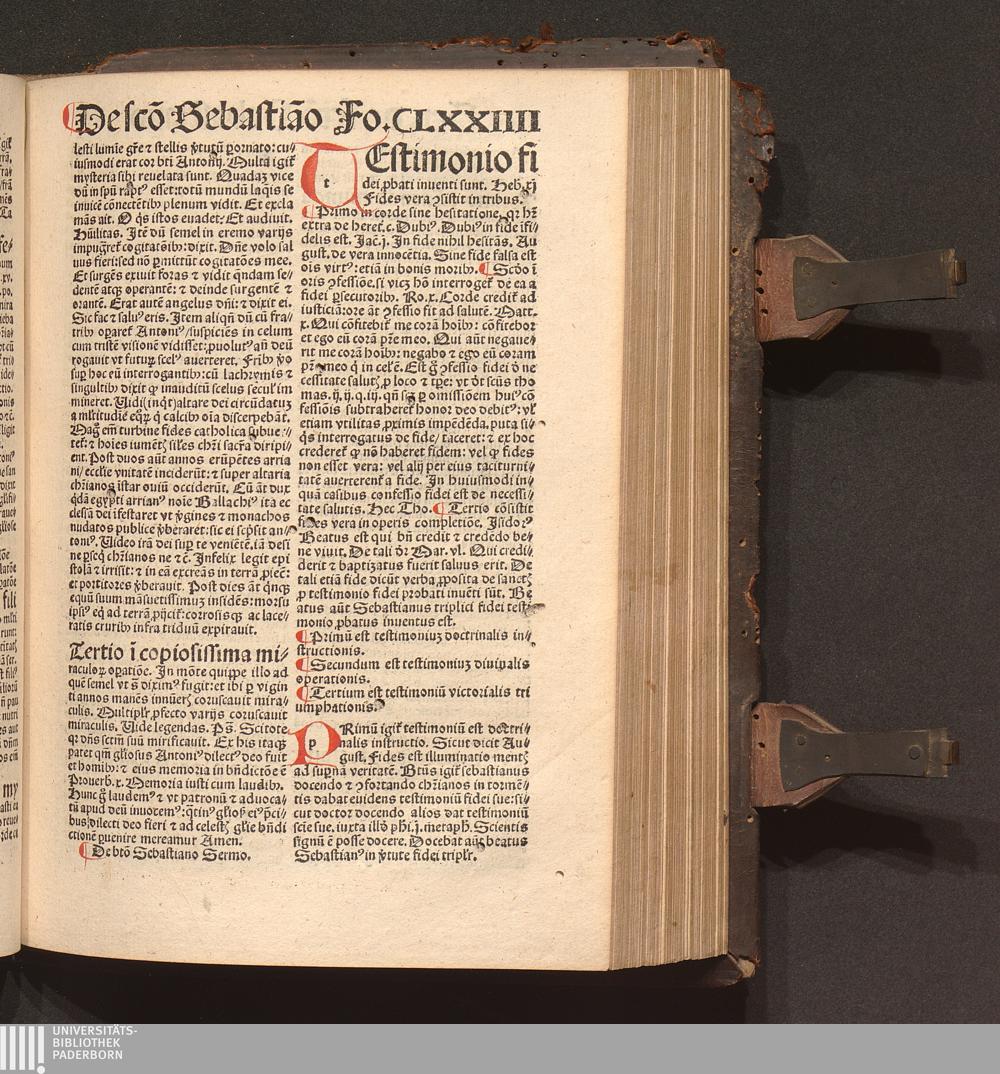 De scō Sebastiāo Fo. CLXXIIII
lesti lumīe gr̄e ⁊ stellis v̓tutū ꝑornato: cu⸗
iusmodi erat cor bti Antonij. Multa igit̄
mysteria sibi reuelata sunt. Quadaꝫ vice
dū in spū rapt᷒ esset: totū mundū laqis se
inuicē connectētib᷒ plenum vidit. Et excla
mās ait. O q̄s istos euadet: Et audiuit.
Hūilitas. Itē dū semel in eremo varijs
impugret̄ cogitatōib᷒: dixit. Dn̄e volo sal
uus fieri: sed nō ꝑmittūt cogitatōes mee.
Et surgēs exiuit foras ⁊ vidit q̄ndam se⸗
dentē atq̄ operantē: ⁊ deinde surgentē ⁊
orantē. Erat autē angelus dn̄i: ⁊ dixit ei.
Sic fac ⁊ salu᷒ eris. Item aliqn̄ dū cū fra⸗
trib᷒ oꝑaret̄ Antoni᷒/ suspiciēs in celum
cum tristē visionē vidisset: ꝓuolut᷒ an̄ deū
rogauit vt futuꝝ scel᷒ auerteret. Frīb᷒ v̓o
suꝑ hoc eū interrogantib᷒: cū lachrymis ⁊
singultib᷒ dixit ꝙ inauditū scelus secul̓ im
mineret. Uidi (inqt) altare dei circūdatuꝫ
a ml̓titudīe eqꝝ q̄ calcib᷒ oīa discerpebāt.
Mag em̄ turbine fides catholica subue⸗
tet̄: ⁊ hoies iumēt siles chr̄i sacr̄a diripi⸗
ent. Post duos aūt annos erūpētes arria
ni/ ecclie vnitatē inciderūt: ⁊ super altaria
chr̄ianos īstar ouiū occiderūt. Eū āt dux
q̄dā egypti arrian᷒ noīe Ballachi᷒ ita ec
clessā dei īfestaret vt v̓gines ⁊ monachos
nudatos publice v̓beraret: sic ei scp̄sit an⸗
toni᷒. Uideo irā dei suꝑ te veniētē. iā desi
ne ꝑseq̄ chr̄ianos ne ⁊ c̄. Infelix legit epi
stolā ⁊ irrisit: ⁊ in eā excreās in terrā ꝓiec̄:
et portitores v̓berauit. Post dies āt q̄nqꝫ
equū suum māsuetissimuꝫ insidēs: morsu
ipsi᷒ eq̄ ad terrā ꝓijcit̄: corrosisqꝫ ac lace⸗
ratis crurib᷒ infra triduū expirauit.
Tertio ī copiosissima mi⸗
raculoꝝ oꝑatiōe. In mōte quippe illo ad
quē semel vt s̄ dixim᷒ fugit: et ibi ꝑ vigin
ti annos manēs innūer coruscauit mira⸗
culis. Multiplr̄ ꝓfecto varijs coruscauit
miraculis. Uide legendas. Ps̄. Scitote
qr dn̄s sctm̄ suū mirificauit. Ex his itaqꝫ
patet qm̄ gl̓iosus Antoni᷒ dilect᷒ deo fuit
et homib᷒: ⁊ eius memoria in bn̄dictōe ē
Prouerb. x. Memoria iusti cum laudib᷒.
Hunc g̊ laudem᷒ ⁊ vt patronū ⁊ aduoca⸗
tū apud deū inuocem᷒: q̄tin᷒ gl̓ioꝝ ei᷒ p̄ci⸗
bus/ dilecti deo fieri ⁊ ad celest gl̓ie bn̄di
ctionē ꝑuenire mereamur Amen.
De btō Sebastiano Sermo.
TEstimonio fi
dei ꝓbati inuenti sunt. Heb. xj
Fides vera ꝯsistit in tribus.
Primo in corde sine hesitatione. qr hr̄
extra de heret. c. Dubi᷒. Dubi᷒ in fide īfi⸗
delis est. Jac. j. In fide nihil hesitās. Au
gust. de vera innocētia. Sine fide falsa est
ois virt᷒: etiā in bonis morib᷒. Scdo ī
oris ꝯfessiōe. si vicꝫ hō interroget̄ de ea a
fidei ꝑsecutorib᷒. Ro. x. Corde credit̄ ad
iusticiā: ore āt ꝯfessio fit ad salutē. Matt.
x. Qui cōfitebit̄ me corā hoīb᷒: cōfitebor
et ego eū corā pr̄e meo. Qui aūt negaue⸗
rit me corā hoīb᷒: negabo ⁊ ego eū coram
pr̄e meo q̄ in cel̓ ē. Est g̊ ꝯfessio fidei d̄ ne
cessitate salut ꝓ loco ⁊ tp̄e: vt d̄t scūs tho
mas. ij. ij. q. iij. qn̄ sꝫ ꝑ omissiōem hui᷒ cō
fessiōis subtraheret̄ honor deo debit᷒: vl̓
etiam vtilitas ꝓximis impēdēda. puta si
q̄s interrogatus de fide/ taceret: ⁊ ex hoc
crederet̄ ꝙ nō haberet fidem: vel ꝙ fides
non esset vera: vel alij per eius taciturni⸗
tatē auerterent̄ a fide. In huiusmodi in⸗
quā casibus confessio fidei est de necessi⸗
tate salutis. Hec Tho. Tertio cōsistit
fides vera in operis completiōe. Isidor᷒
Beatus est qui bn̄ credit ⁊ credēdo be⸗
ne viuit. De tali dr̄ Mar. vl. Qui credi⸗
derit ⁊ baptizatus fuerit saluus erit. De
tali etiā fide dicūt verba ꝓposita de sanct
ꝑ testimonio fidei probati inuēti sūt. Be
atus aūt Sebastianus triplici fidei testi⸗
monio ꝓbatus inuentus est.
Primū est testimoniuꝫ doctrinalis in⸗
structionis.
Secundum est testimoniuꝫ diuinalis
operationis.
Tertium est testimoniū victorialis tri
umphationis.
PRimū igit̄ testimoniū est doctri⸗
nalis instructio. Sicut dicit Au⸗
gust. Fides est illuminatio ment
ad supnā veritatē. Bt̄us igit̄ sebastianus
docendo ⁊ ꝯfortando chr̄ianos in tormē⸗
tis dabat euidens testimoniū fidei sue: si⸗
cut doctor docendo alios dat testimoniū
scīe sue. iuxta illd̓ phi. j. metaph. Scientis
signū ē posse docere. Docebat aūt beatus
Sebastian᷒ in v̓tute fidei tripl̓r.
UNIVERSITÄTS-
BIBLIOTHEK
PADERBORN